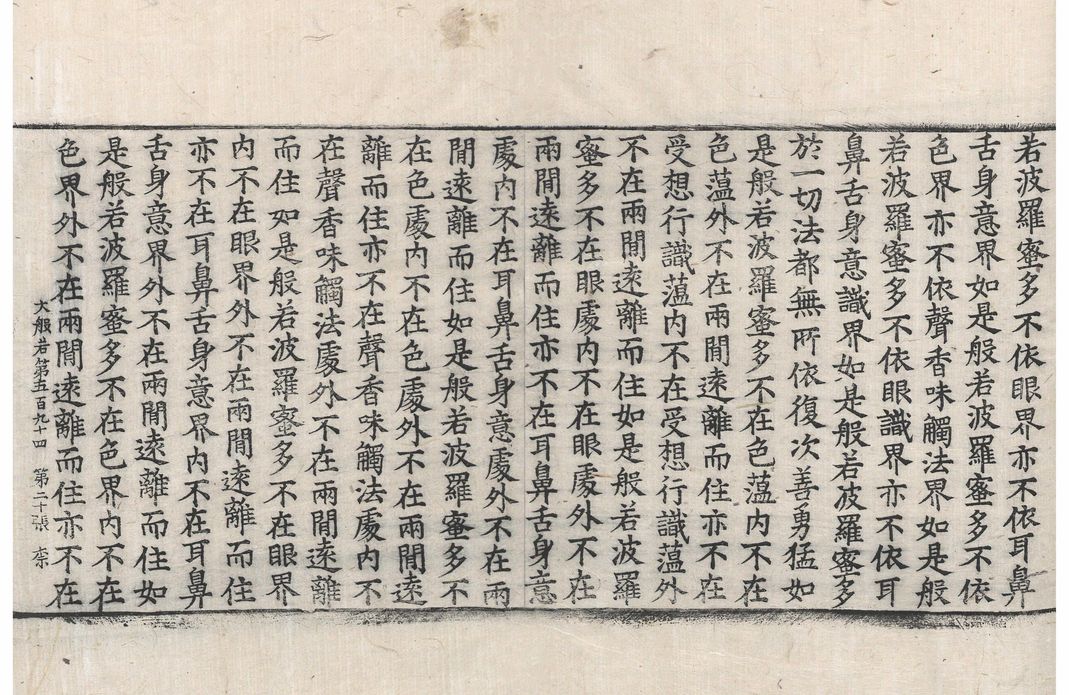 若波羅蜜多不依眼界亦不依耳鼻
舌身意界如是般若波羅蜜多不依
色界亦不依聲香味觸法界如是般
若波羅蜜多不依眼識界亦不依耳
鼻舌身意識界如是般若波羅蜜多
於一切法都無所依復次善勇猛如
是般若波羅蜜多不在色薀內不在
色薀外不在兩閒遠離而住亦不在
受想行識薀內不在受想行識薀外
不在兩閒遠離而住如是般若波羅
蜜多不在眼處內不在眼處外不在
兩閒遠離而住亦不在耳鼻舌身意
處內不在耳鼻舌身意處外不在兩
閒遠離而住如是般若波羅蜜多不
在色處內不在色處外不在兩閒遠
離而住亦不在聲香味觸法處內不
在聲香味觸法處外不在兩閒遠離
而住如是般若波羅蜜多不在眼界
內不在眼界外不在兩閒遠離而住
亦不在耳鼻舌身意界內不在耳鼻
舌身意界外不在兩閒遠離而住如
是般若波羅蜜多不在色界內不在
色界外不在兩閒遠離而住亦不在
大般若第五百九十四 第二十張 柰